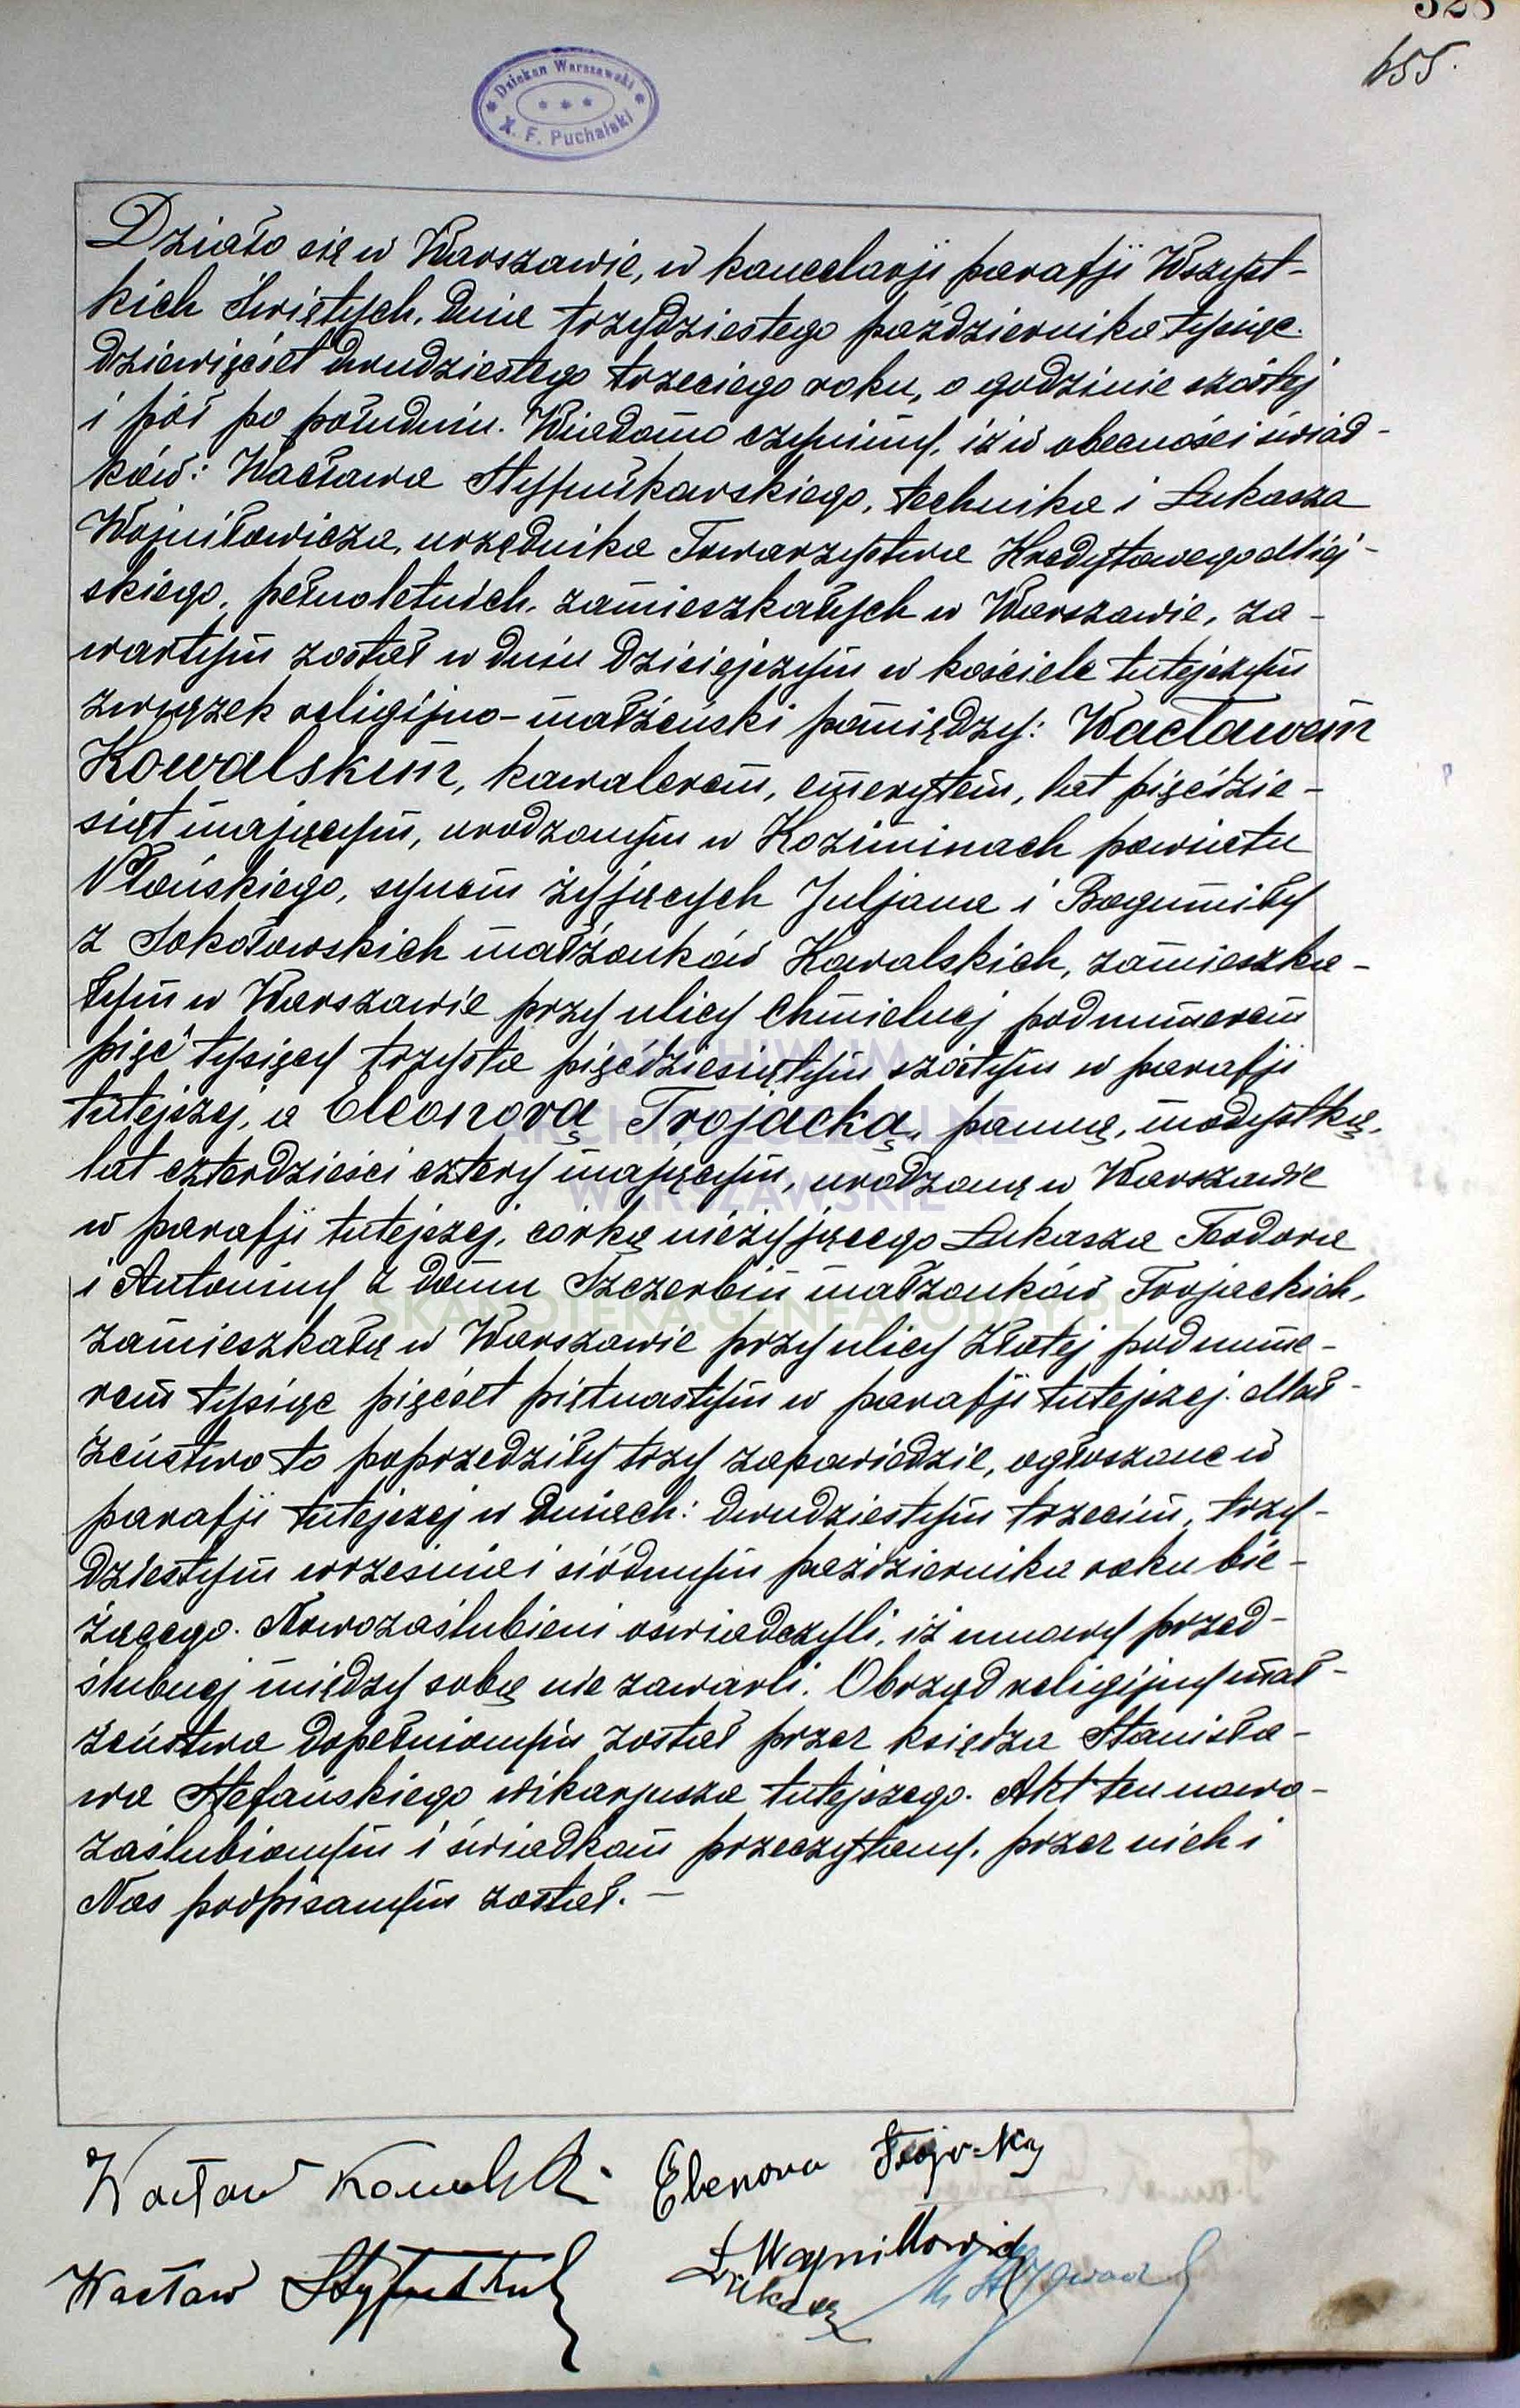 328
655.
Dziekan Warszawski
X. F. Puchalski
Działo się w Warszawie, w kancelarji parafji Wszyst-
kich Świętych, dnia trzydziestego października tysiąc
dziewięćset dwudziestego trzeciego roku, o godzinie szóstej
i pół po południu. Wiadomo czynimy, iż w obecności świad-
ków: Wacława, technika i Łukasza
Wojniłowicza, urzędnika Towarzystwa Kredytowego Miej-
skiego, pełnoletnich, zamieszkałych w Warszawie, za-
wartym został w dniu dzisiejszym w kościele tutejszym
związek religijno-małżeński pomiędzy: Wacławem
Kowalskim, kawalerem, emerytem, lat pięćdzie-
siąt mającym, urodzonym w Koziminach powiatu
Płońskiego, synem żyjących Juljana i Bogumiły
z Sokołowskich małżonków Kowalskich, zamieszka-
łym w Warszawie przy ulicy Chmielnej pod numerem
pięć tysięcy trzysta pięćdziesiątym szóstym w parafji
tutejszej, a Eleonorą Trojacką, panną, modystką,
lat czterdzieści cztery mającym, urodzoną w Warszawie
w parafji tutejszej, córką nieżyjącego Łukasza Teodora
i Antoniny z domu Szczerbin małżonków Trojackich,
zamieszkałą w Warszawie przy ulicy Złotej pod nume-
rem tysiąc pięćset piętnastym w parafji tutejszej. Mał-
żeństwo to poprzedziły trzy zapowiedzie, ogłoszone w
parafji tutejszej w dniach: dwudziestym trzecim, trzy-
dziestym września i siódmym października roku bie-
żącego. Nowozaślubieni oświadczyli, iż umowy przed-
ślubnej między sobą nie zawarli. Obrzęd religijny mał-
żeństwa dopełnionym został przez księdza Stanisła-
wa Stefańskiego wikarjusza tutejszego. Akt ten nowo-
zaślubionym i świadkom przeczytany, przez nich i
Nas podpisanym został. —
ARCHIWUM
ARCHIDIECEZJALNE
WARSZAWSKIE
SKANOTEKA.GENEALODZY.PL
Wacław Kowalski Eleonora Trojacka
Wacław Ł Wojniłłowicz
Łukasz